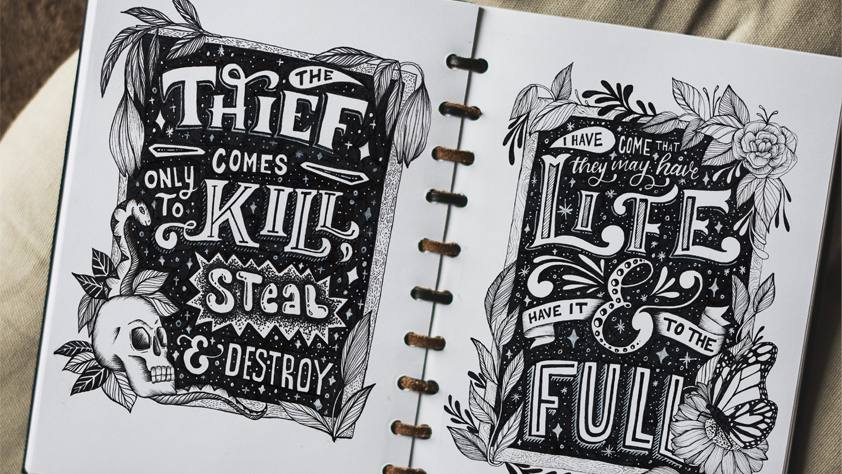 THE
THIEF
COMES
ONLY
TO
KILL,
STEAL
& DESTROY
I HAVE COME THAT
they may have
LIFE
&
HAVE IT TO THE
FULL